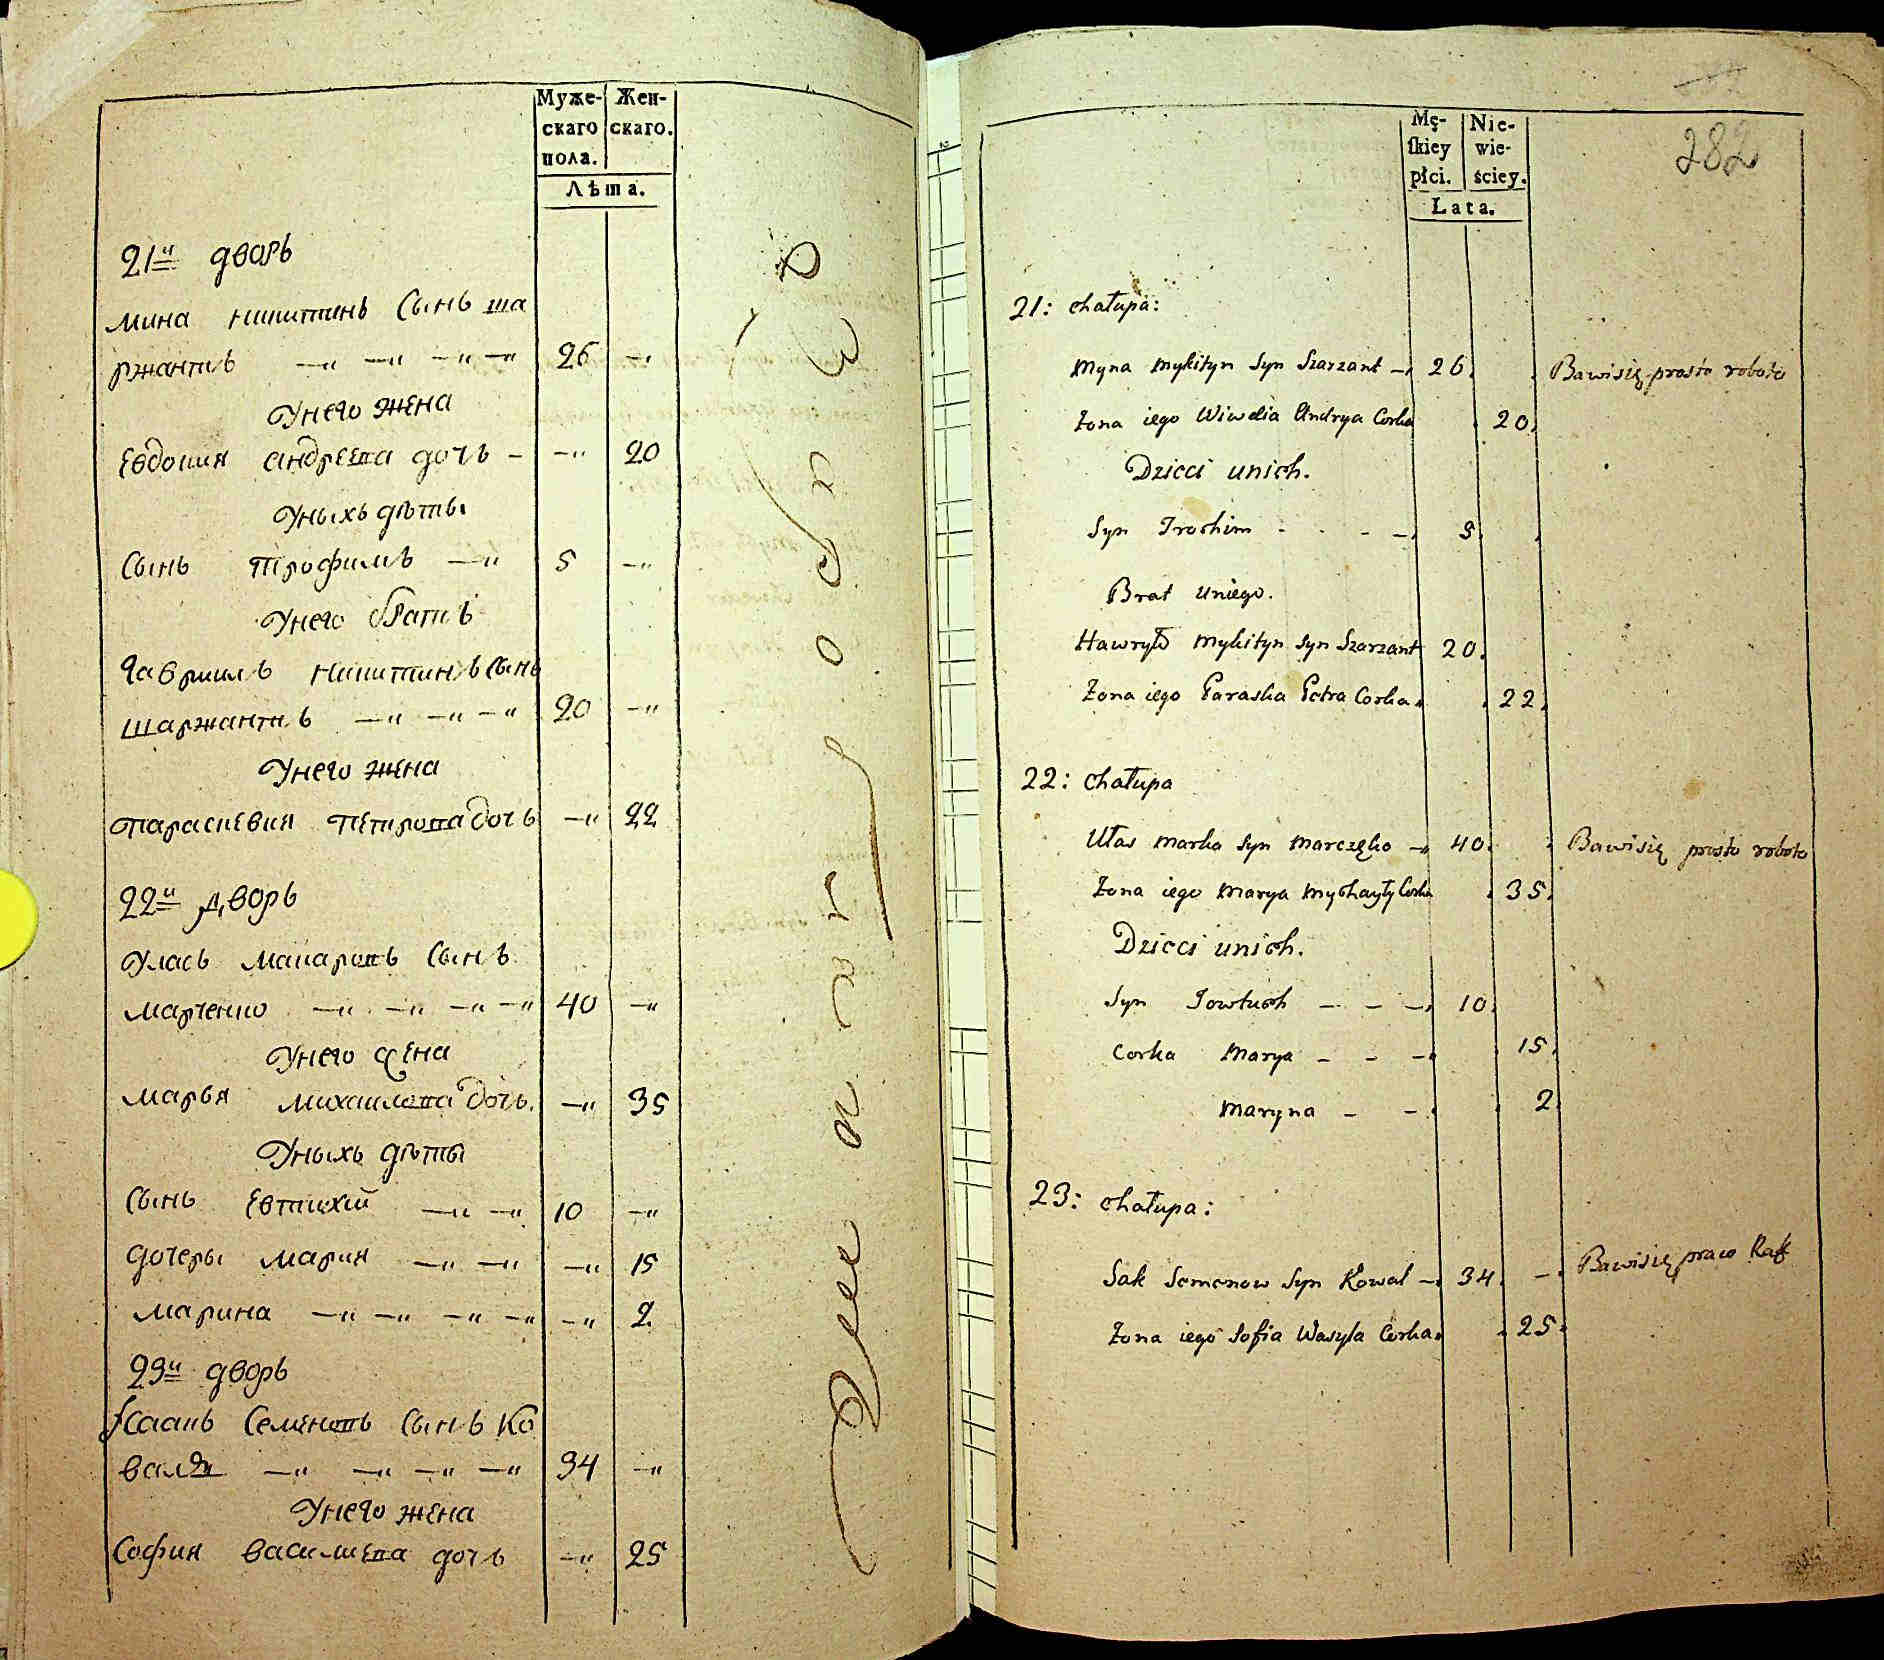 Муже- Жен-
скаго скаго.
пола.
Лѣта.
21й дворъ
Мина никитинъ Сынъ ша
ржантъ —„ —„ —„ —„ 26 —„
Унего жена
Евдокия андреева дочь — —„ 20
Уныхъ дѣты
Сынъ трофимъ —„ 5 —„
Унего братъ
Гавриилъ Никитинъ сынъ
шаржантъ —„ —„ —„ 20 —„
Унего жена
параскевия петрова дочь —„ 22
22й дворъ
Уласъ макаровъ Сынъ
марченко —„ —„ —„ —„ 40 —„
Унего жена
марья михаилова дочь. —„ 35
Уныхъ дѣты
Сынъ Евтихій —„ —„ 10 —„
дочеры мария —„ —„ —„ 15
марина —„ —„ —„ —„ —„ 2
23й дворъ
Исаакъ Семеновъ Сынъ Ко
валь —„ —„ —„ —„ 34 —„
Унего жена
София василиева дочь —„ 25
Mę- Nie-
ſkiey wie-
płci. ściey.
Lata.
282
21: chałupa:
Myna Mykityn Syn Szarzant — 26. Bawisię prosto roboto
Żona iego Wiwdia Andrya Corka 20.
Dzieci unich.
Syn Trochim - - - — 5.
Brat uniego.
Hawryło Mykityn Syn Szarzant 20.
Żona iego Paraska Petra Corka. 22.
22: chałupa
Ułas Marka Syn Marczęko — 40. Bawisię prosto roboto
Żona iego Marya Mychayły Corka 35.
Dzieci unich.
Syn Jowtuch — — — 10.
Corka Marya — - — 15.
Maryna — - 2.
23: chałupa:
Sak Semenow Syn Kowal — 34. —. Bawisię praco
Żona iego Sofia Wasyla Corka. 25.